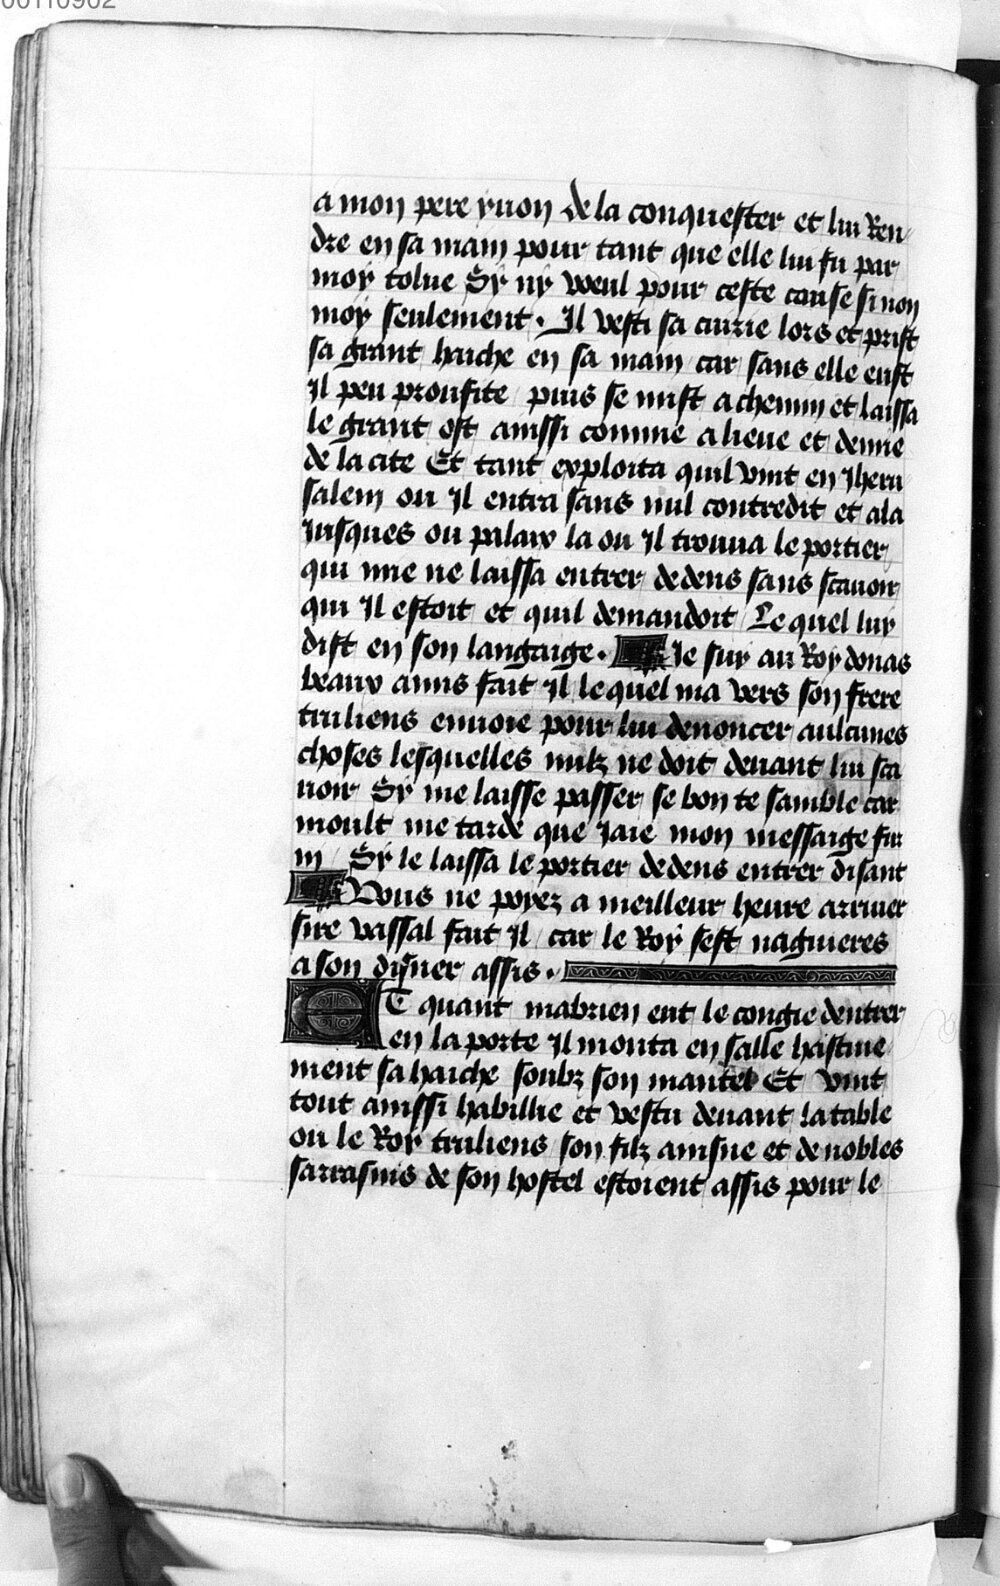 00110902
a mon pere yuon de la conquester et lui Ren
dre en sa main pour tant que elle lui fu par
moy tolue Sy ny veul pour ceste cause si non
moy seulement. Il vesti sa cuirie lors et prist
sa grant haiche en sa main car sans elle eust
Il peu proufite puis se mist a chemin et laissa
le grant ost ainssi comme a lieue et demie
de la cite Et tant exploita quil vint en Jheru
salem ou Il entra sans nul contredit et ala
Jusques ou palaix la ou Il trouua le portier
qui mie ne laissa entrer dedens sans scauoir
qui Il estoit et quil demandoit Le quel luy
dist en son langaige. Je suy au Roy donas
beaux amis fait Il lequel ma vers son frere
truliens enuoie pour lui denoncer aulcunes
choses lesquelles nulz ne doit deuant lui sca
uoir Sy me laisse passer se bon te samble car
moult me tarde que Jaie mon messaige fur
ni Sy le laissa le portier dedens entrer disant
Vous ne poyez a meilleur heure arriuer
sire vassal fait Il car le Roy sest nagueres
a son disner assis.
ET quant mabrien eut le congie dentrer
en la porte Il monta en salle hastiue
ment sa haiche soubz son mantel Et vint
tout ainssi habillie et vestu deuant la table
ou le Roy truliens son filz ainsne et de nobles
sarrasins de son hostel estoient assis pour le